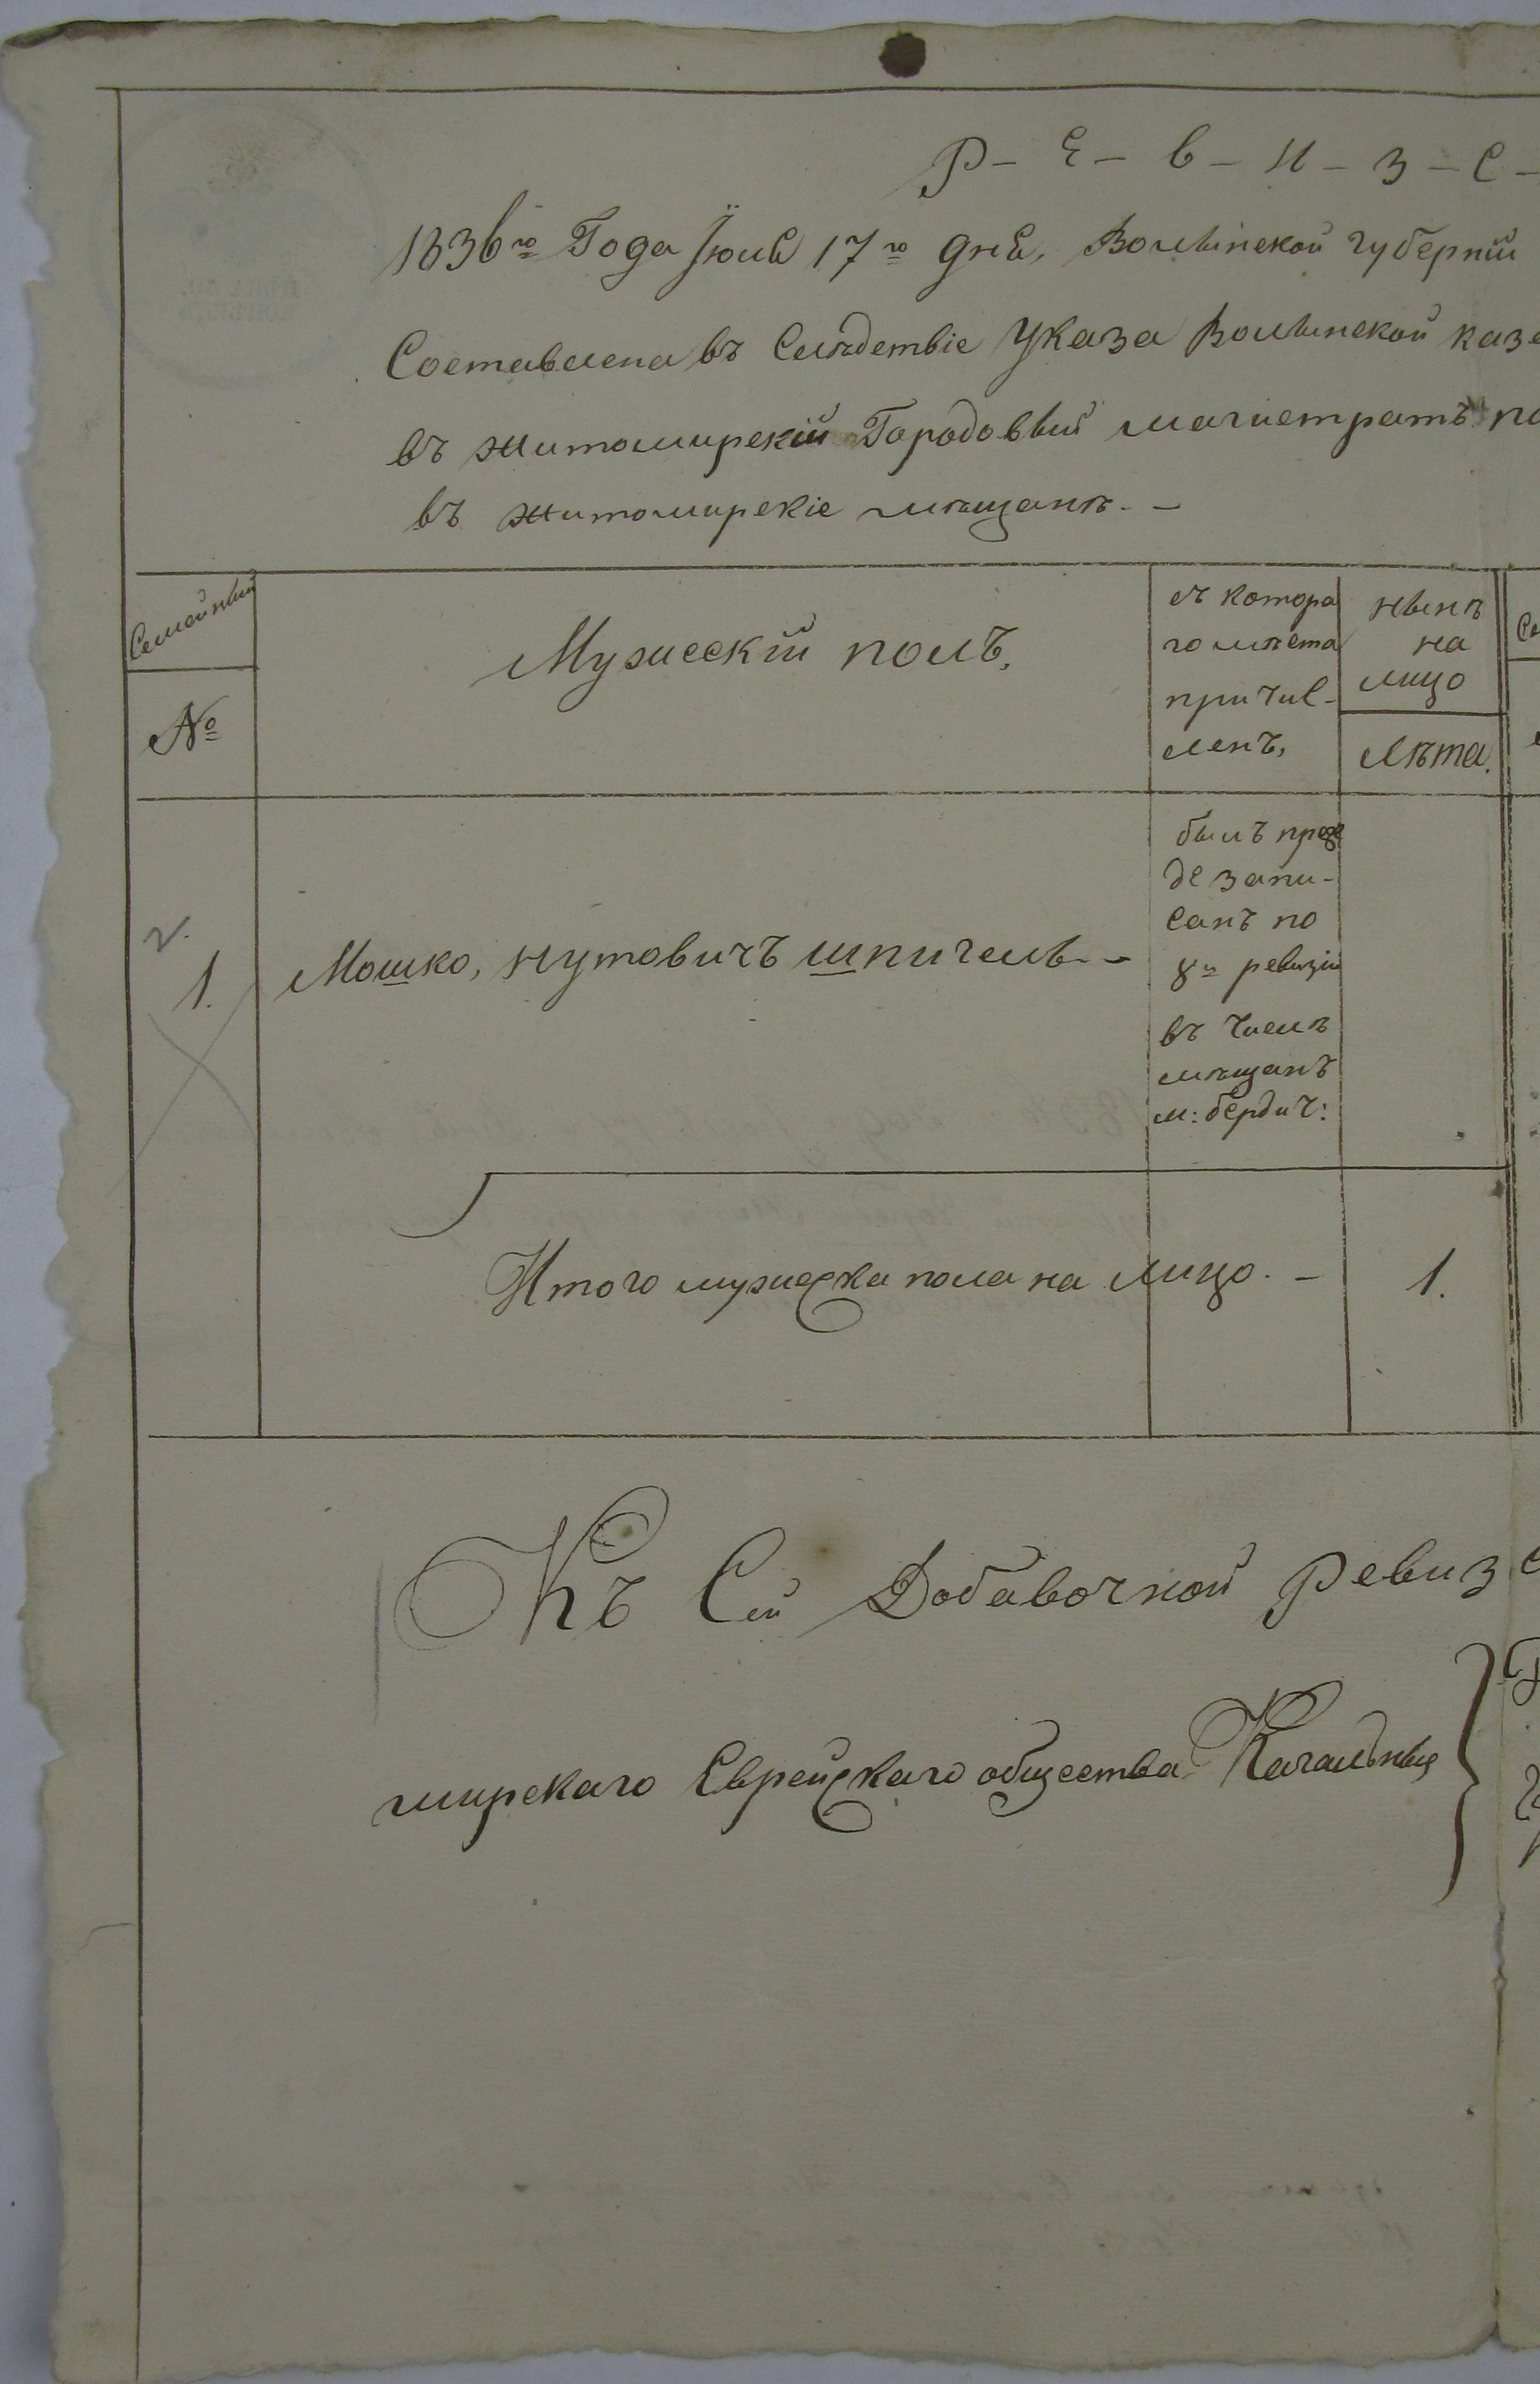 Р-Е-в-и-з-с-
1836го Года Июня 17го дня, Волынской губернии
Составлена въ Следствіе Указа Волынской казе
въ житомирскій Городовый магистратъ по
въ житомирскіе мѣщанѣ. -
Семейный
№
Мужеский полъ.
съ котора
го мѣста
причис-
ленъ,
нынѣ
на
лицо
лѣта.
былъ преж
де запи-
санъ по
8й ревизіи
въ числѣ
мѣщанъ
м: бердич:
1.
Мошко, нутовичъ шпигель -
Итого мужеска пола на лицо. - 1.
Къ Сей Добавочной Ревиз
мирскаго Еврейскаго общества Кагальные